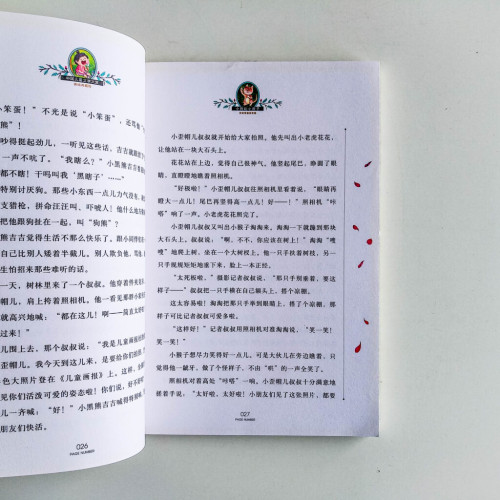 小笨蛋！”不光是说“小笨蛋”，还骂他“
熊”！
吵得挺起劲儿，一听见这些话，吉吉就蹲
一声不吭了。“我瞎么？”小黑熊吉吉
都不瞎！干吗叫我‘黑瞎子’……”
特别讨厌狗。那些小东西一点儿力气没有，
支猎枪，拼命汪汪叫、吓唬人！他什么地方
把他跟狗扯在一起，叫“狗熊”！
熊吉吉觉得生活不那么快乐了。跟小同伴
自己比别人矮着半截儿。别人欺负他，
生怕招来那些难听的话。
一天，树林里来了一个叔叔。他穿着
帽儿，肩上挎着照相机。他一看见那群小
就高兴地喊：“都在这儿！啊——简直太
过来！”
儿围上去，那个叔叔说：“我是儿童画报
歪帽儿。我今天到这儿来，是要给你们
色大照片登在《儿童画报》上。这样，
见你们活泼可爱的姿态啦！你们说，好不
儿一齐喊：“好！”小黑熊吉吉喊得
朋友们快活。
026
PAGE NUMBER
小歪帽儿叔叔就开始给大家拍照。他先叫出小老虎花花，
让他站在一块大石头上。
花花站在上边，觉得自己很神气。他竖起尾巴，睁圆了眼
睛，直瞪瞪地瞧着照相机。
“好极啦！”小歪帽儿叔叔往照相机里看着说，“眼睛再
瞪大一点儿！尾巴再竖得高一点儿！好——！”照相机“咔
嗒”响了一声。小老虎花花照完了。
小歪帽儿叔叔又叫出小猴子淘淘来。淘淘一下就蹦到那块
大石头上。叔叔说：“啊，不不，你应该在树上！”淘淘“噌
噌”地爬上树，坐在一个大树杈上。他一只手扶着树枝，另一
只手规规矩矩地垂下来，脸上一本正经。
“太死板啦。”摄影记者叔叔说，“那只手别垂着，要这
样子——”叔叔把一只手横在自己额头上，搭个凉棚。
这太容易啦！淘淘把那只手举到眼睛上，也搭了个凉棚，那
样子可比记者叔叔可爱多啦。
“这样好！”记者叔叔用照相机对着淘淘说，“笑一笑！
笑一笑！”
小猴子想尽力笑得好一点儿，可是大伙儿在旁边瞧着，只
觉得他一龇牙，做了个怪样子，不由“哄”的一声全笑了。
照相机对着高处“咔嗒”一响，小歪帽儿叔叔十分满意地
搓着手说：“太好啦，太好啦！小朋友们见了这张照片，都要
027
PAGE NUMBER